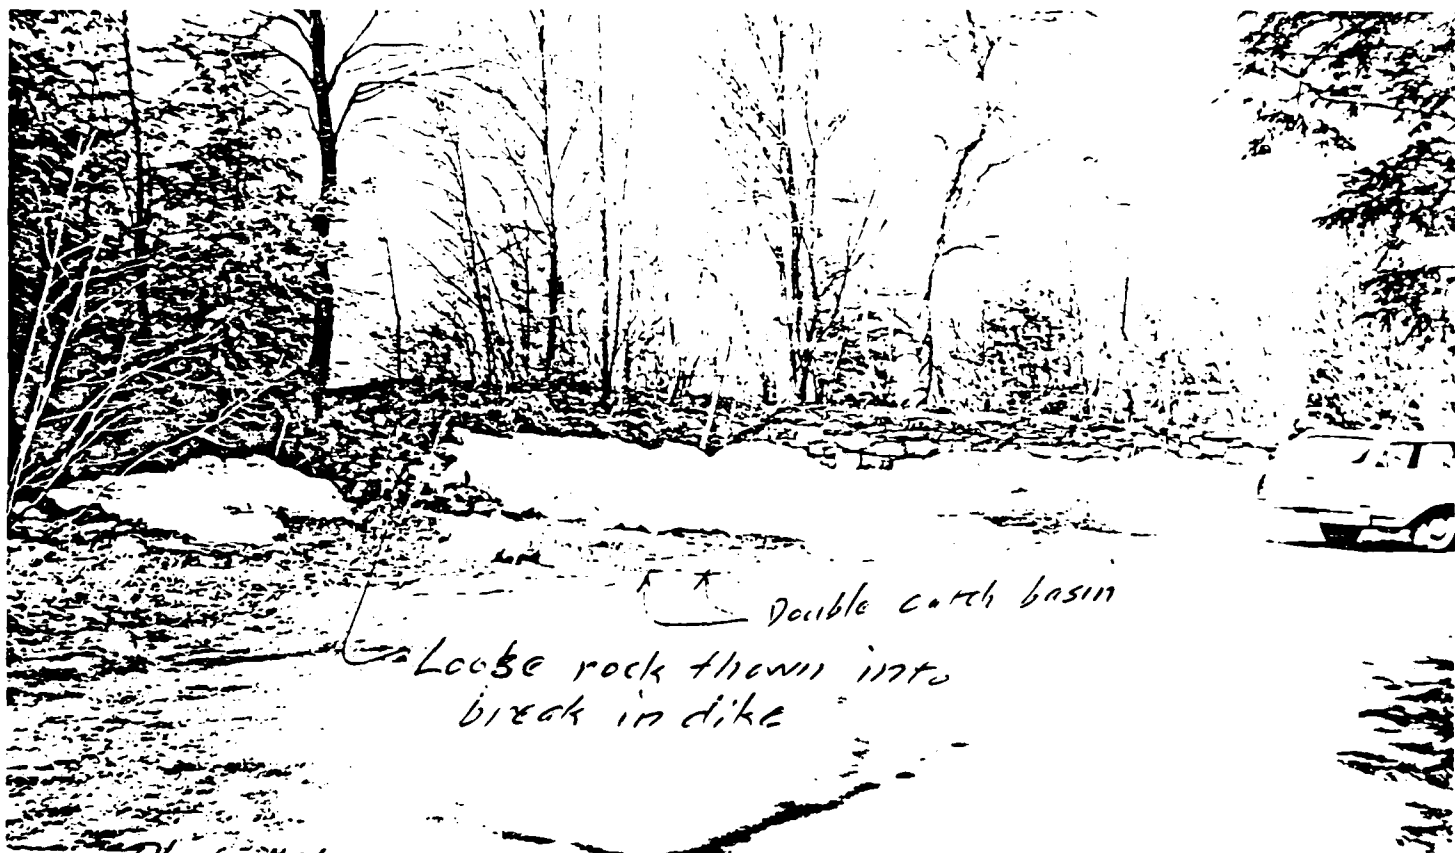 Double catch basin
Loose rock thown into
break in dike